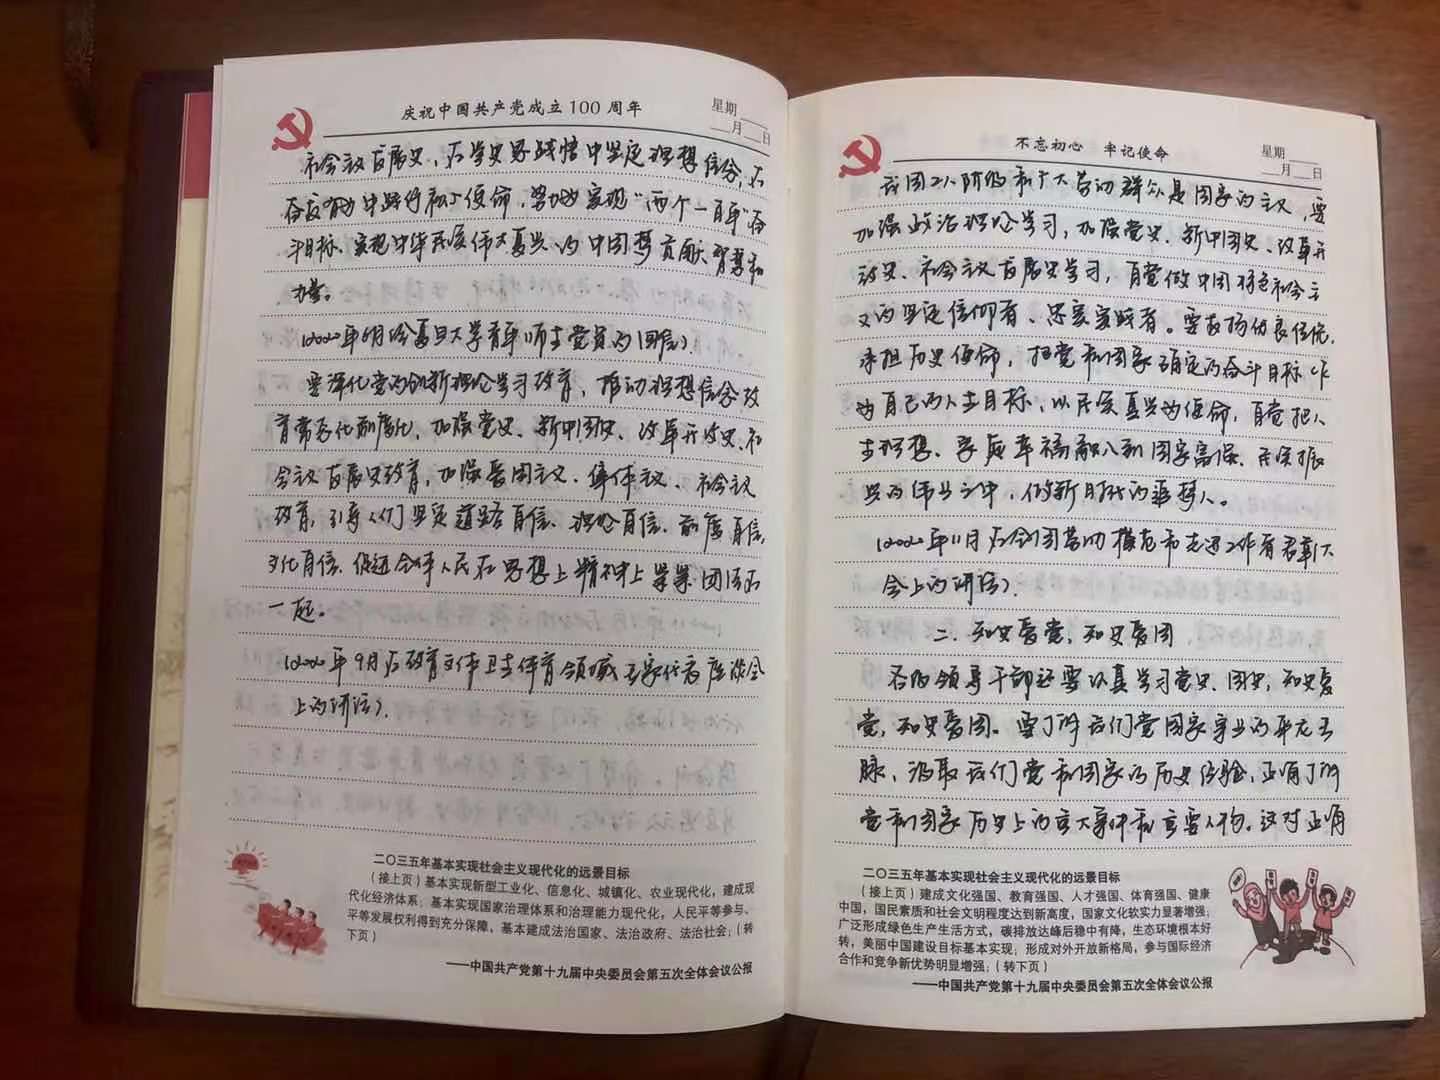 庆祝中国共产党成立 100 周年
星期
月 日
社会主义发展史，在学史思践悟中坚定理想信念，在
奋发有为中践行初心使命，努力为实现“两个一百年”奋
斗目标、实现中华民族伟大复兴的中国梦贡献智慧和
力量。
(2020年6月给复旦大学青年师生党员的回信)
要深化党的创新理论学习教育，推动理想信念教
育常态化制度化，加强党史、新中国史、改革开放史、社
会主义发展史教育，加强爱国主义、集体主义、社会主义
教育，引导人们坚定道路自信、理论自信、制度自信、
文化自信，促进全体人民在思想上精神上紧紧团结在
一起。
(2020年9月在教育文化卫生体育领域专家代表座谈会
上的讲话)
二〇三五年基本实现社会主义现代化的远景目标
（接上页）基本实现新型工业化、信息化、城镇化、农业现代化，建成现
代化经济体系；基本实现国家治理体系和治理能力现代化，人民平等参与、
平等发展权利得到充分保障，基本建成法治国家、法治政府、法治社会；（转
下页）
——中国共产党第十九届中央委员会第五次全体会议公报
不忘初心 牢记使命
星期
月 日
我国工人阶级和广大劳动群众是国家的主人，要
加强政治理论学习，加强党史、新中国史、改革开
放史、社会主义发展史学习，自觉做中国特色社会主
义的坚定信仰者、忠实实践者。要发扬优良传统，
承担历史使命，把党和国家确定的奋斗目标作
为自己的人生目标，以民族复兴为使命，自觉把人
生理想、家庭幸福融入到国家富强、民族振
兴的伟业之中，做新时代的追梦人。
(2020年11月在全国劳动模范和先进工作者表彰大
会上的讲话)
二、知史爱党，知史爱国
各级领导干部还要认真学习党史、国史，知史爱
党，知史爱国。要了解我们党和国家事业的来龙去
脉，汲取我们党和国家的历史经验，正确了解
党和国家历史上的重大事件和重要人物。这对正确
二〇三五年基本实现社会主义现代化的远景目标
（接上页）建成文化强国、教育强国、人才强国、体育强国、健康
中国，国民素质和社会文明程度达到新高度，国家文化软实力显著增强；
广泛形成绿色生产生活方式，碳排放达峰后稳中有降，生态环境根本好
转，美丽中国建设目标基本实现；形成对外开放新格局，参与国际经济
合作和竞争新优势明显增强；（转下页）
——中国共产党第十九届中央委员会第五次全体会议公报